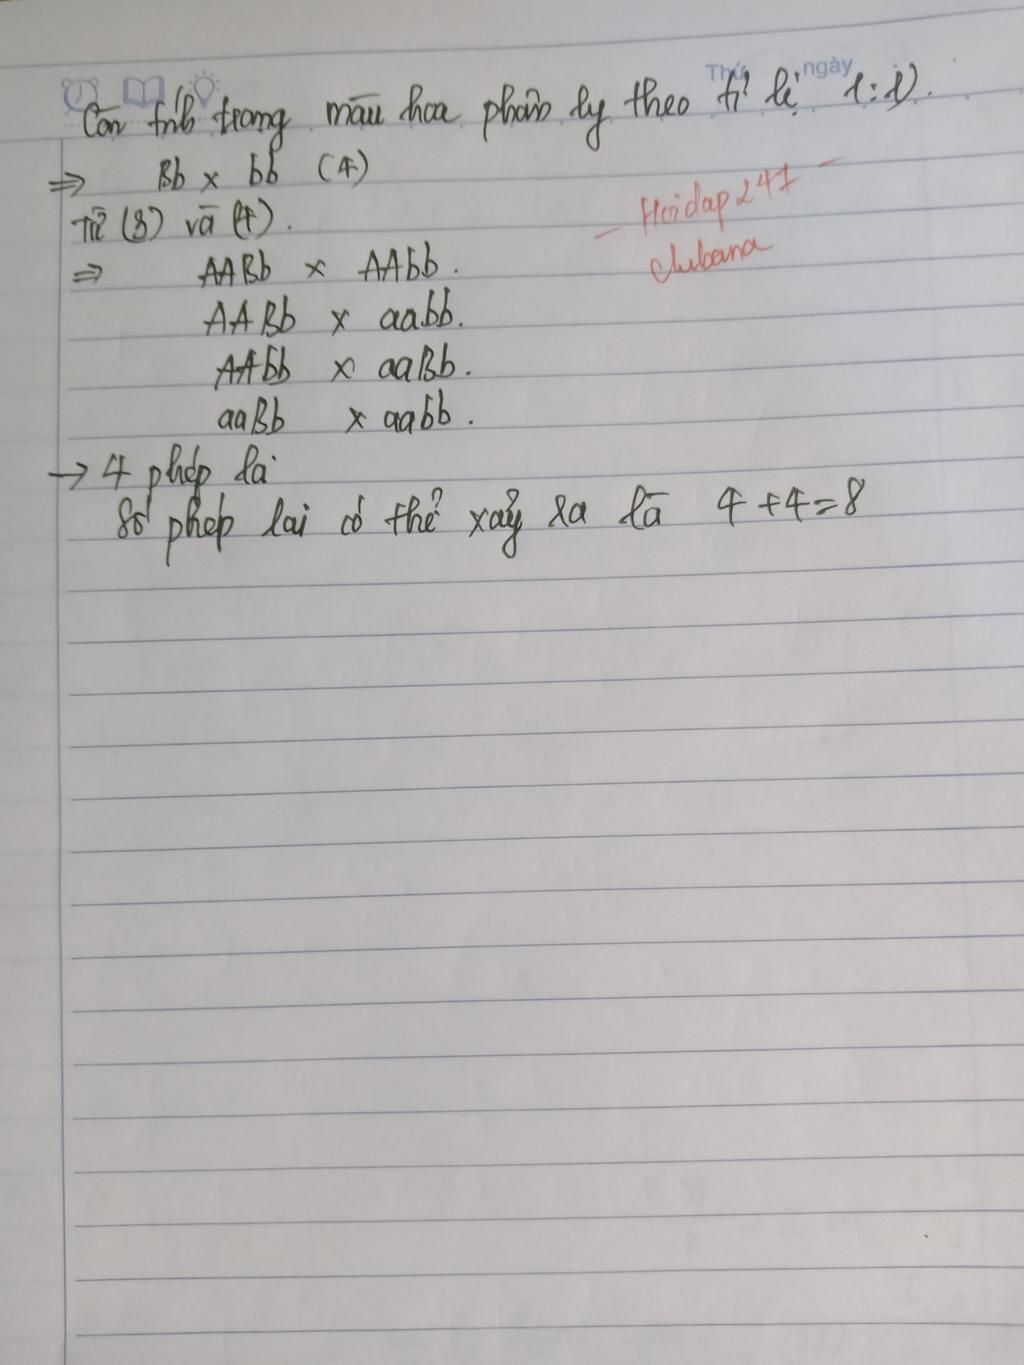 Thứ ngày
Còn tính trạng màu hoa phân ly theo tỉ lệ 1:1).
⇒ Bb x bb (4)
Từ (3) và (4).
- Hoidap247 -
⇒ AABb x AAbb.
AABb x aabb.
AAbb x aaBb.
aaBb x aabb.
→ 4 phép lai
Số phép lai có thể xảy ra là 4+4=8